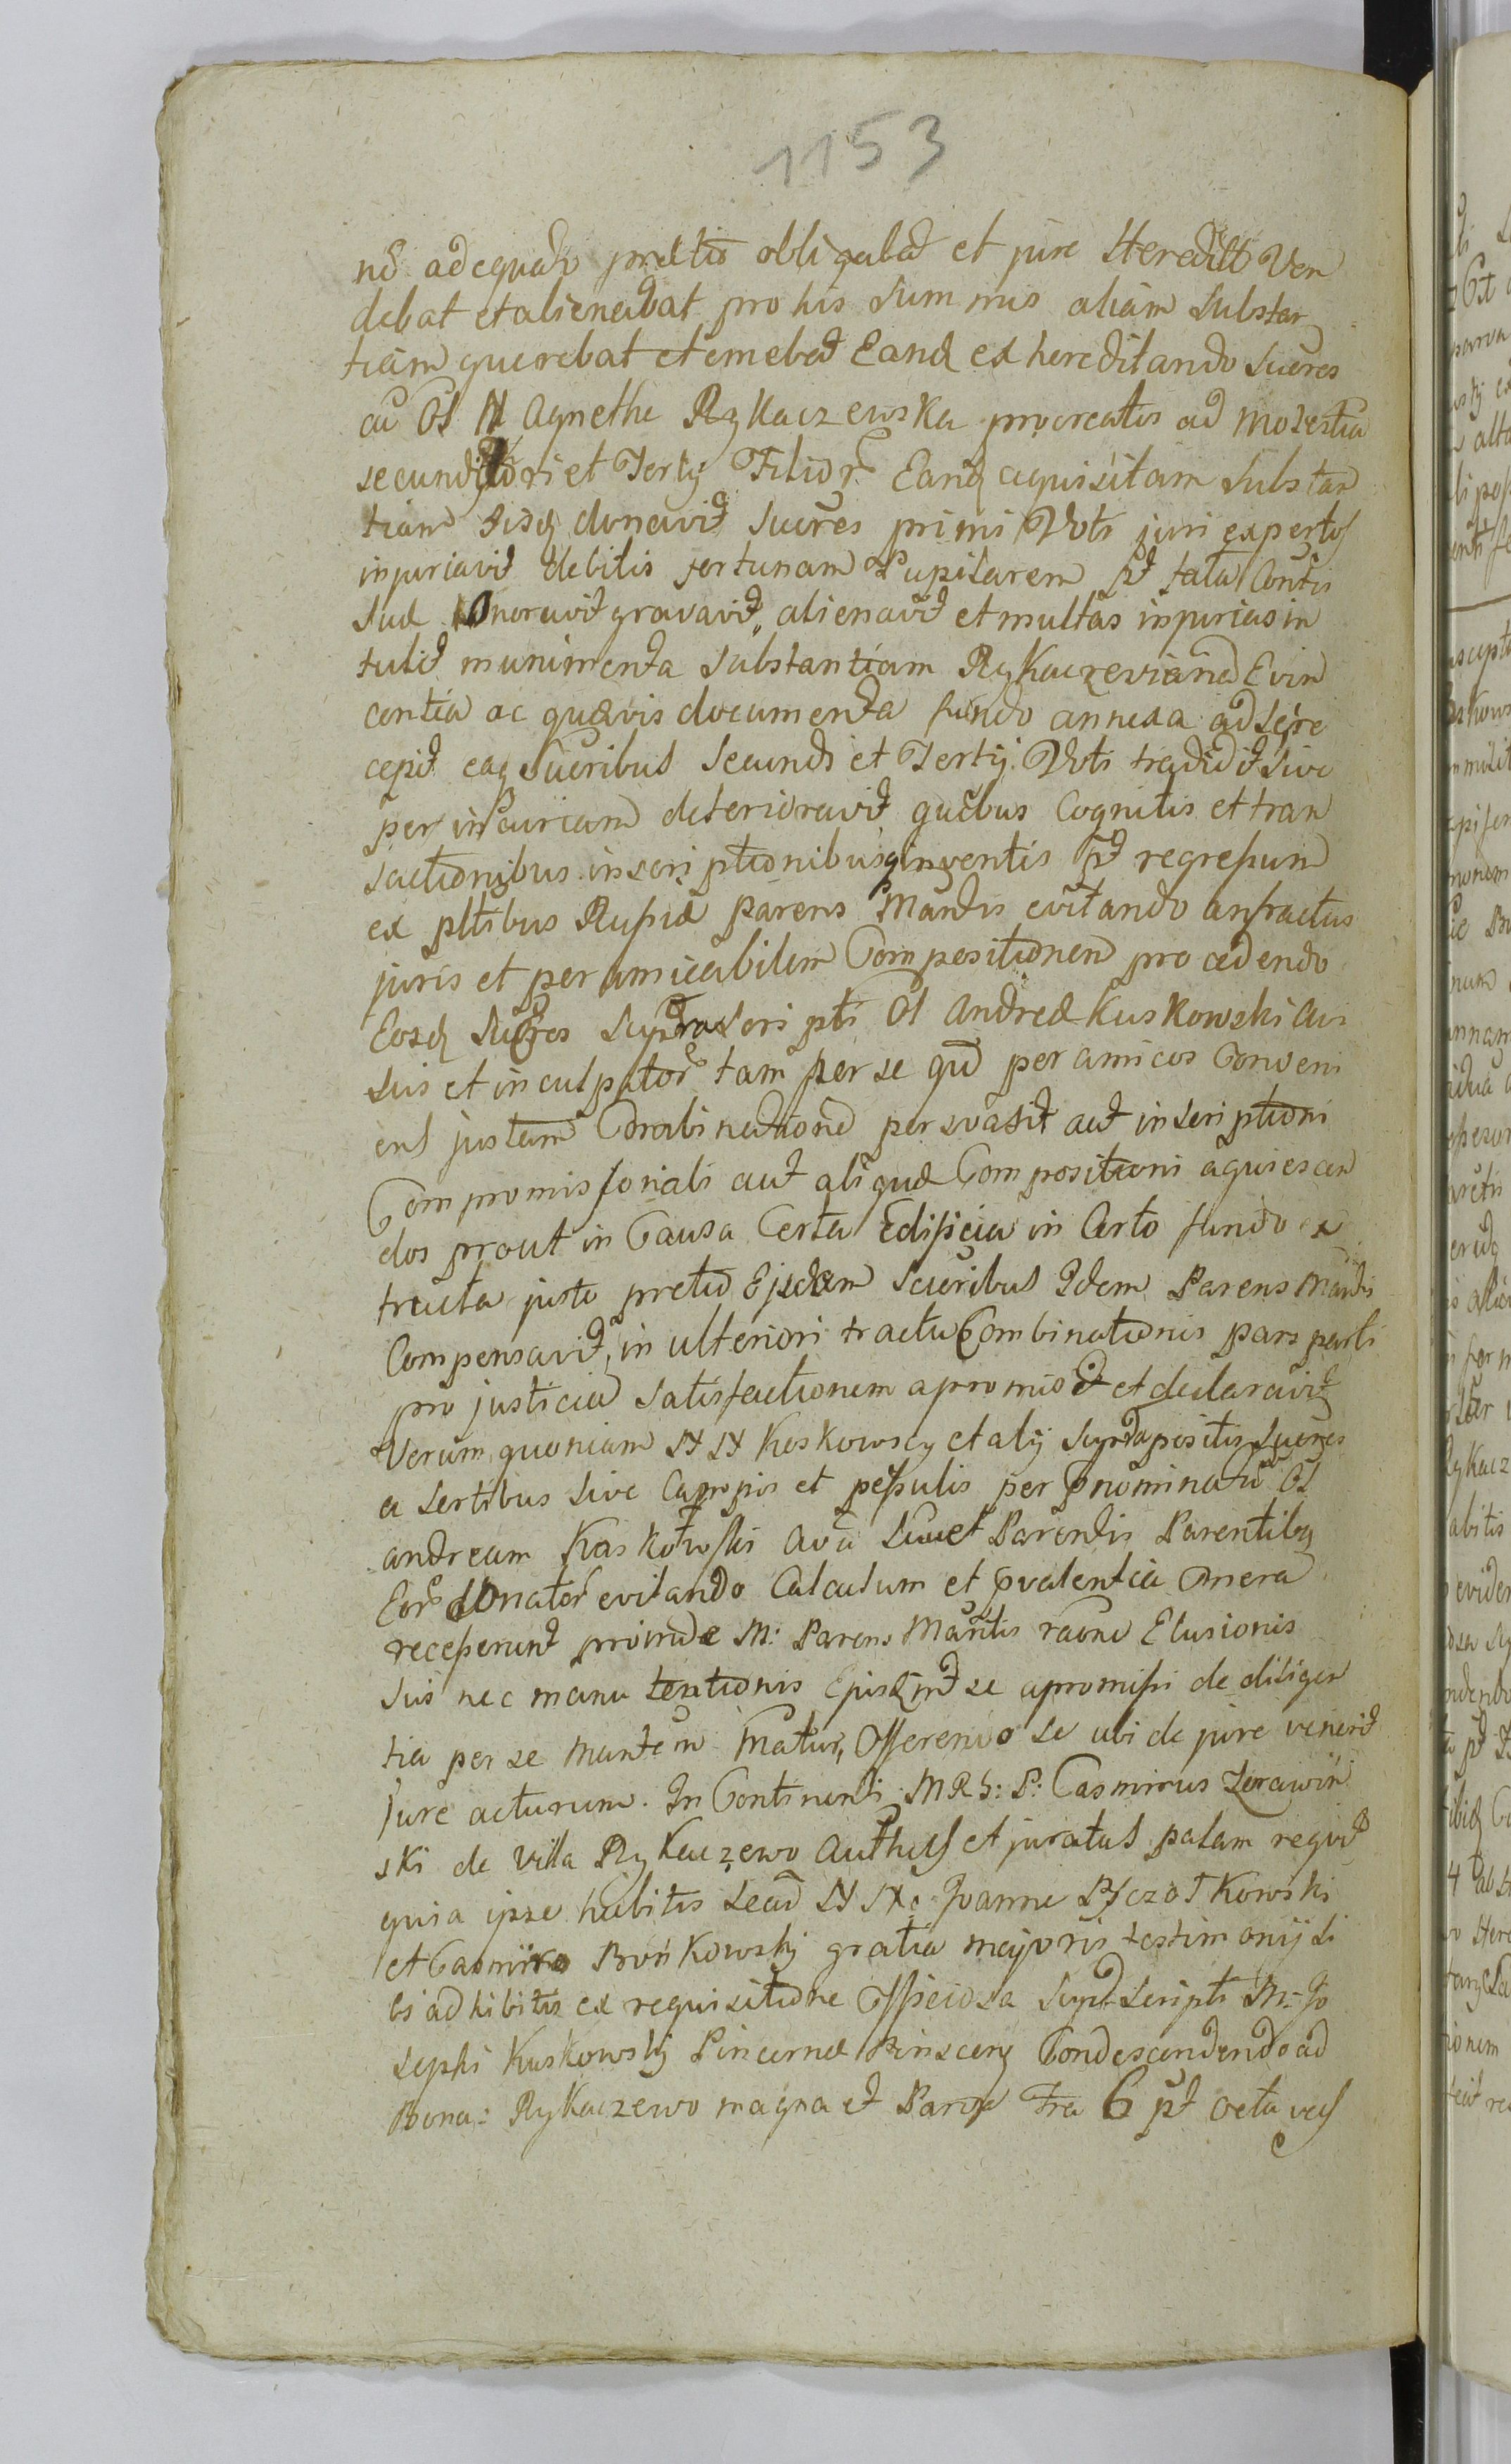 1153
nō adequato pretio obligabat et jure Heredit Ven
debat et alienabat pro his Summis aliam Substan
tiam querebat et emebat Eand ex hereditando Sucres
cu Ol N Agnethe Rykaczewska procreatis ad molestia
secundi tori et Tertij Filior Eand aquisitam Substan
tiam donavit Sucres primi Voti juri expertos
injuriavit debitis fortunam Pupilarem pt fata
Suæ Onoravit gravavit, alienavit et multas injurias in
tulit munimenta Substantiam Rykaczevianā Evin
centia ac quævis documenta fundo annexa ad se re
cepit eaq Sucribus Secundi et Tertij Voti tradidit Sive
per incuriam deterioravit quibus Cognitis et tran
sactionibus inscriptionibusq inventis pt regressum
ex pltibus Rupiæ parens Mandis evitando anfractus
juris et per amicabilem Compositionem procedendo
Eosq Sucres Suprascripti Ol Andreæ Kuskowski Avi
Sui et inculpator tam per se qu per amicos Conveni
ens justam Combinationē persvasit aut inscriptioni
Compromissoriali aut aliquæ Compositioni aquiescen
dos prout in Causa Certa Edificia in Certo fundo ex
tructa justo pretio Ejusdem Sucribus Idem Parens Mandis
Compensavit, in ulteriori tractu Combinationis pars parti
pro justicia Satisfactionem apromisit et declaravit
Verum quoniam N N Koskowscy et alij Suprapositis Sucres
a Sertibus Sive Campis et pessulis per pnominatu Ol
Andream Kaskowski Avu Suu et Parentis Parentibq
Eor Donator evitando Calculum et pvalentia Onera
receperunt proinde M: Parens Mantis raone Elusionis
Sui nec manu tentionis se apromissi de diligen
tia per se Offerendo se ubi de jure venerit
Jure acturum. In Continenti MRS: P: Casmirus Zerawin
ski de Villa Rykaczewo Auths et juratus palam reqvit
quia ipse habitis Secū N N: Joanne Pszczołkowski
et Casmiro Bońkowskij gratia majoris testimonij Si
bi adhibitis ex requisitione Officiosa Supra Scripti M: Jo
sephi Kuskowskij Pincernæ Pinscens Condescendendo ad
Bona: Rykaczewo magna et Parva Fra 6 pt octavas